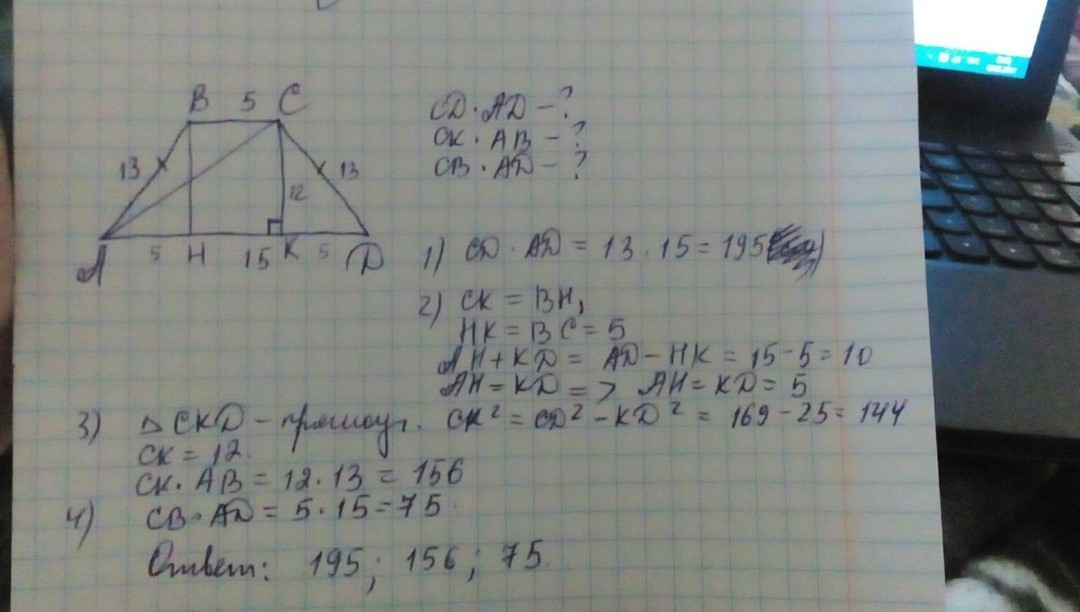 B 5 C
13 12 13
A 5 H 15 K 5 D
CD · AD - ?
CK · AB - ?
CB · AD - ?
1) CD · AD = 13 · 15 = 195
2) CK = BH,
HK = BC = 5
AH + KD = AD - HK = 15 - 5 = 10
AH = KD => AH = KD = 5
3) △ CKD - прямоуг. CK² = CD² - KD² = 169 - 25 = 144
CK = 12.
CK · AB = 12 · 13 = 156
4) CB · AD = 5 · 15 = 75.
Ответ: 195; 156; 75.